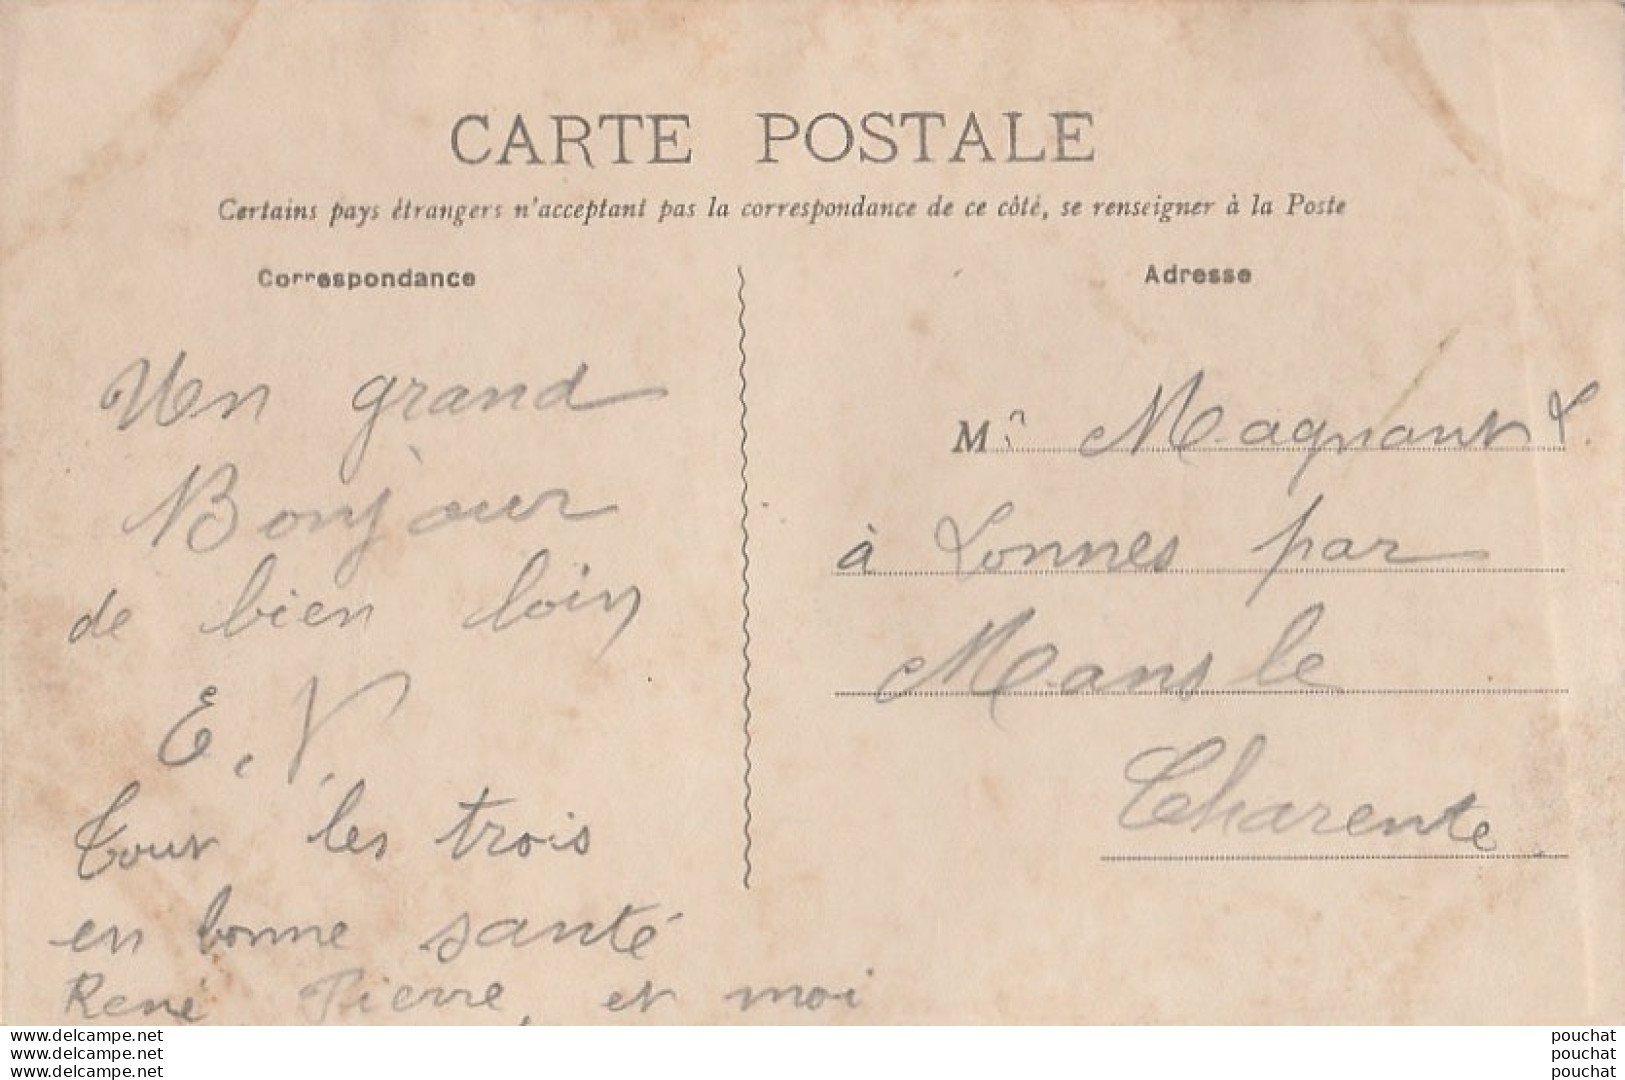 CARTE POSTALE
Certains pays étrangers n'acceptant pas la correspondance de ce côté, se renseigner à la Poste
Correspondance
Un grand
Bonjour
de bien loin
E. V.
Tous les trois
en bonne santé
René Pierre, et moi
Adresse
Mr Magnant L.
à Lonnes par
Mansle
Charente.
www.delcampe.net
www.delcampe.net
www.delcampe.net
pouchat
pouchat
pouchat